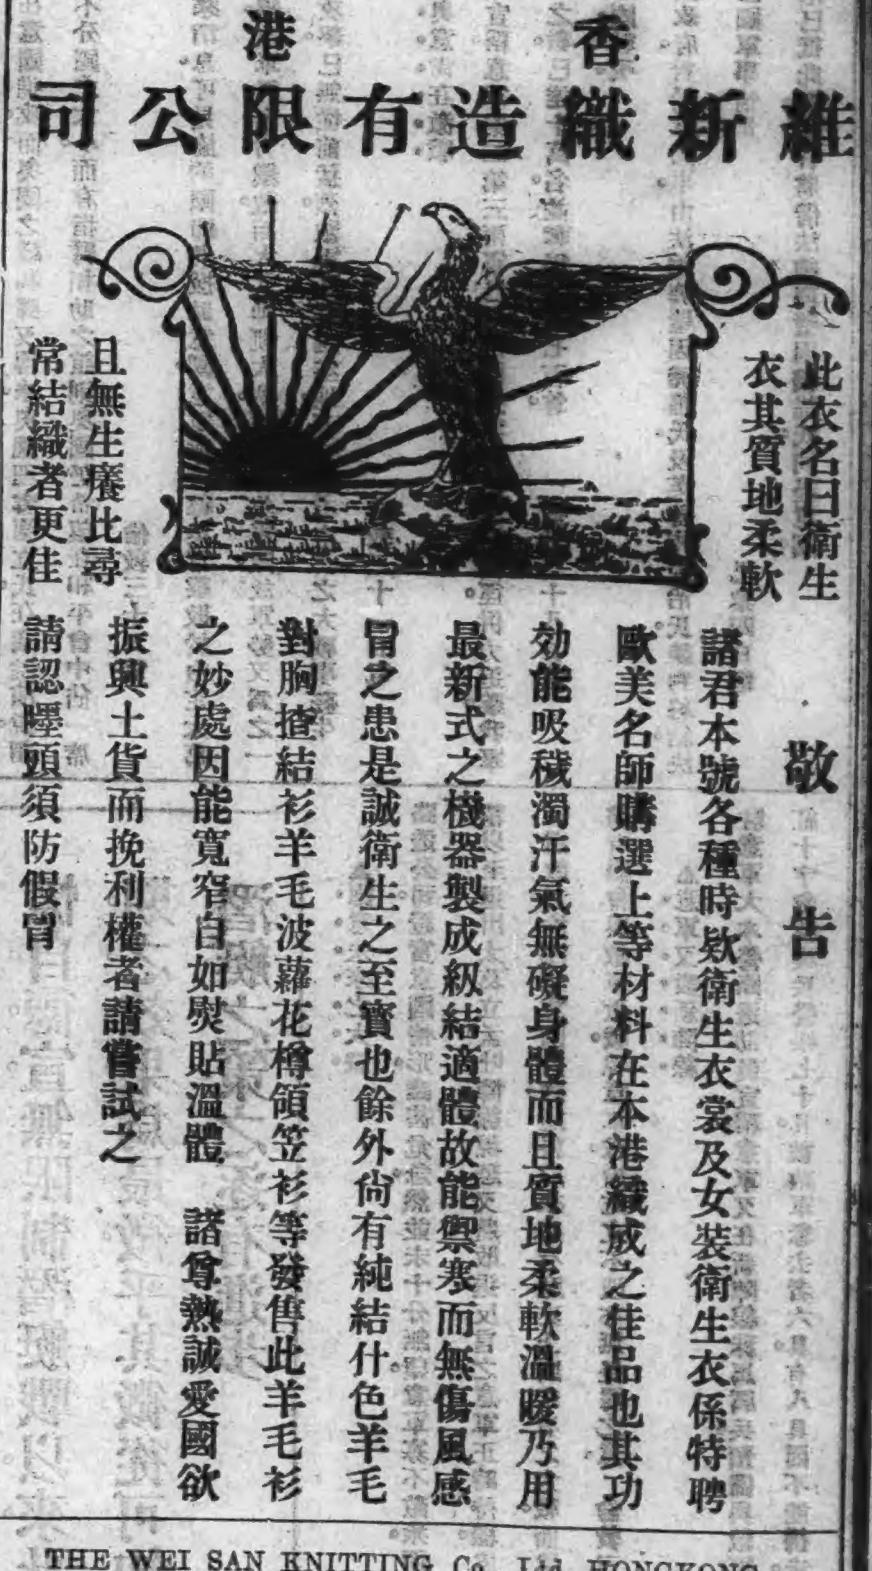 香港
維新織造有限公司
此衣名曰衛生
衣其質地柔軟
且無生癢比尋
常結織者更佳
敬告
諸君本號各種時欵衛生衣裳及女裝衛生衣係特聘
歐美名師購選上等材料在本港織成之佳品也其功
効能吸穢濁汗氣無礙身體而且質地柔軟溫暖乃用
最新式之機器製成級結適體故能禦寒而無傷風感
冒之患是誠衛生之至寶也餘外尙有純結什色羊毛
對胸揸結衫羊毛波蘿花樽領笠衫等發售此羊毛衫
之妙處因能寬窄自如熨貼溫體 諸尊熱誠愛國欲
振興土貨而挽利權者請嘗試之
請認嘜頭須防假冒
THE WEI SAN KNITTING Co. Ltd. HONGKONG